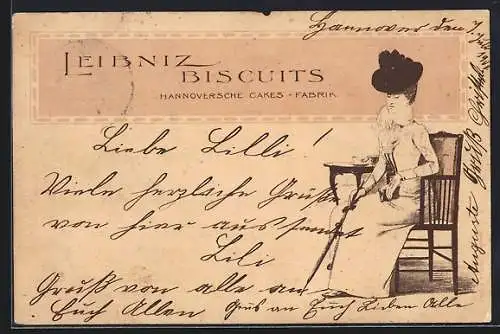 Hannover den 7.
LEIBNIZ
BISCUITS
HANNOVERSCHE CAKES-FABRIK
Liebe Lilli!
Viele herzliche Grüße
von hier aus sendet
Lili
Gruß von alle an
Euch Allen
Grus an Euch Lieben Alle
Auguste